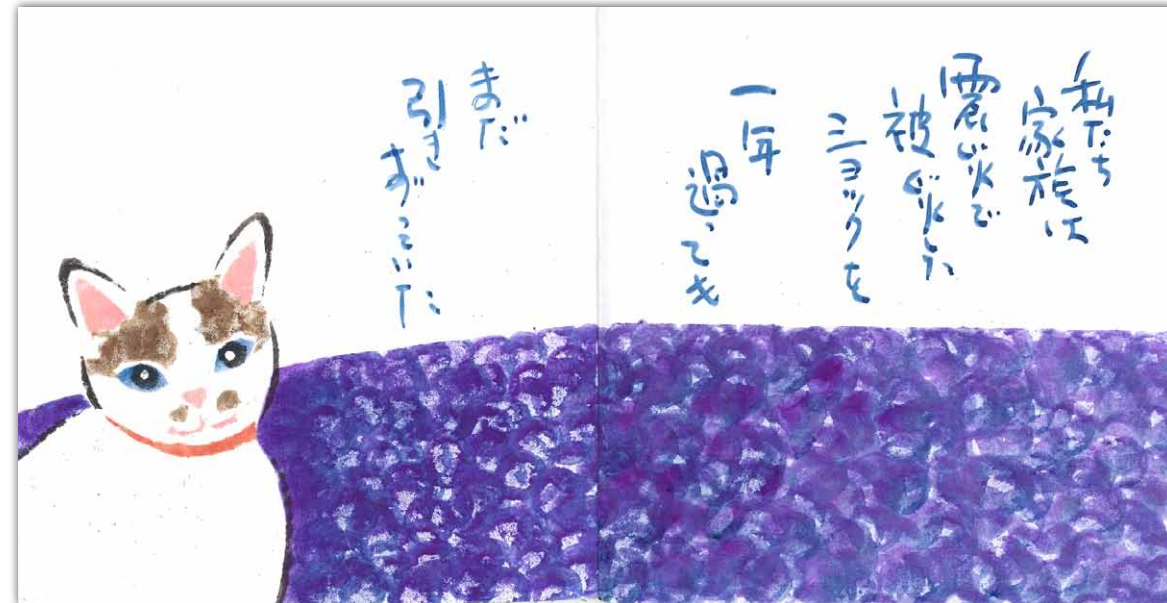 私たち
家族は
震災で
被災した
ショックを
一年
過っても
まだ
引きずっていた